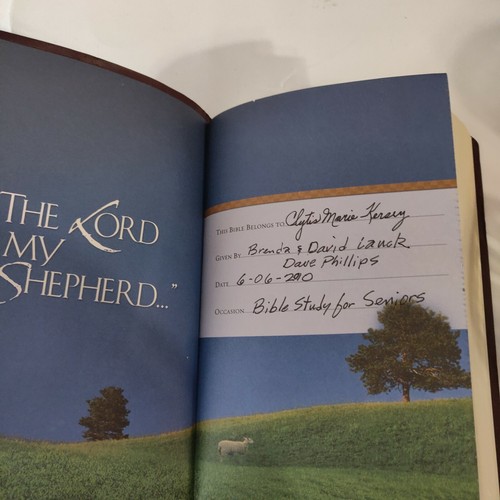 THE LORD
MY
SHEPHERD..."
THIS BIBLE BELONGS TO Clytis Marie Kersey
GIVEN BY Brenda & David Lanck
Dave Phillips
DATE 6-06-2010
OCCASION Bible Study for Seniors